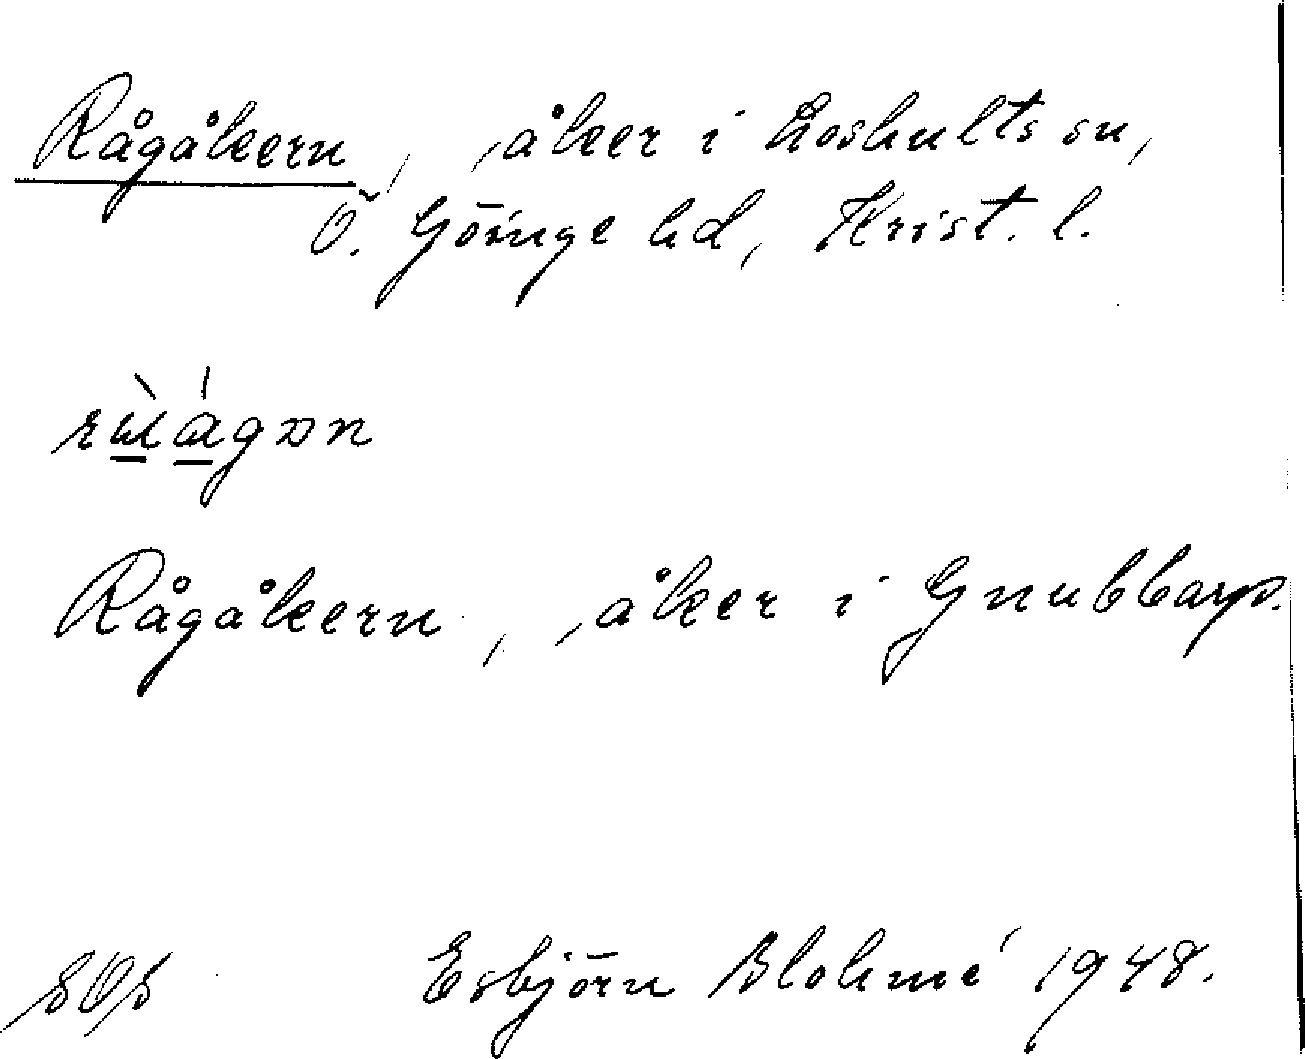 Rågåkern, åker i Loshults sn,
Ö. Göinge hd, Krist. l.
Rågåkern, åker i Gnubbarp.
Esbjörn Blohmé 1948.